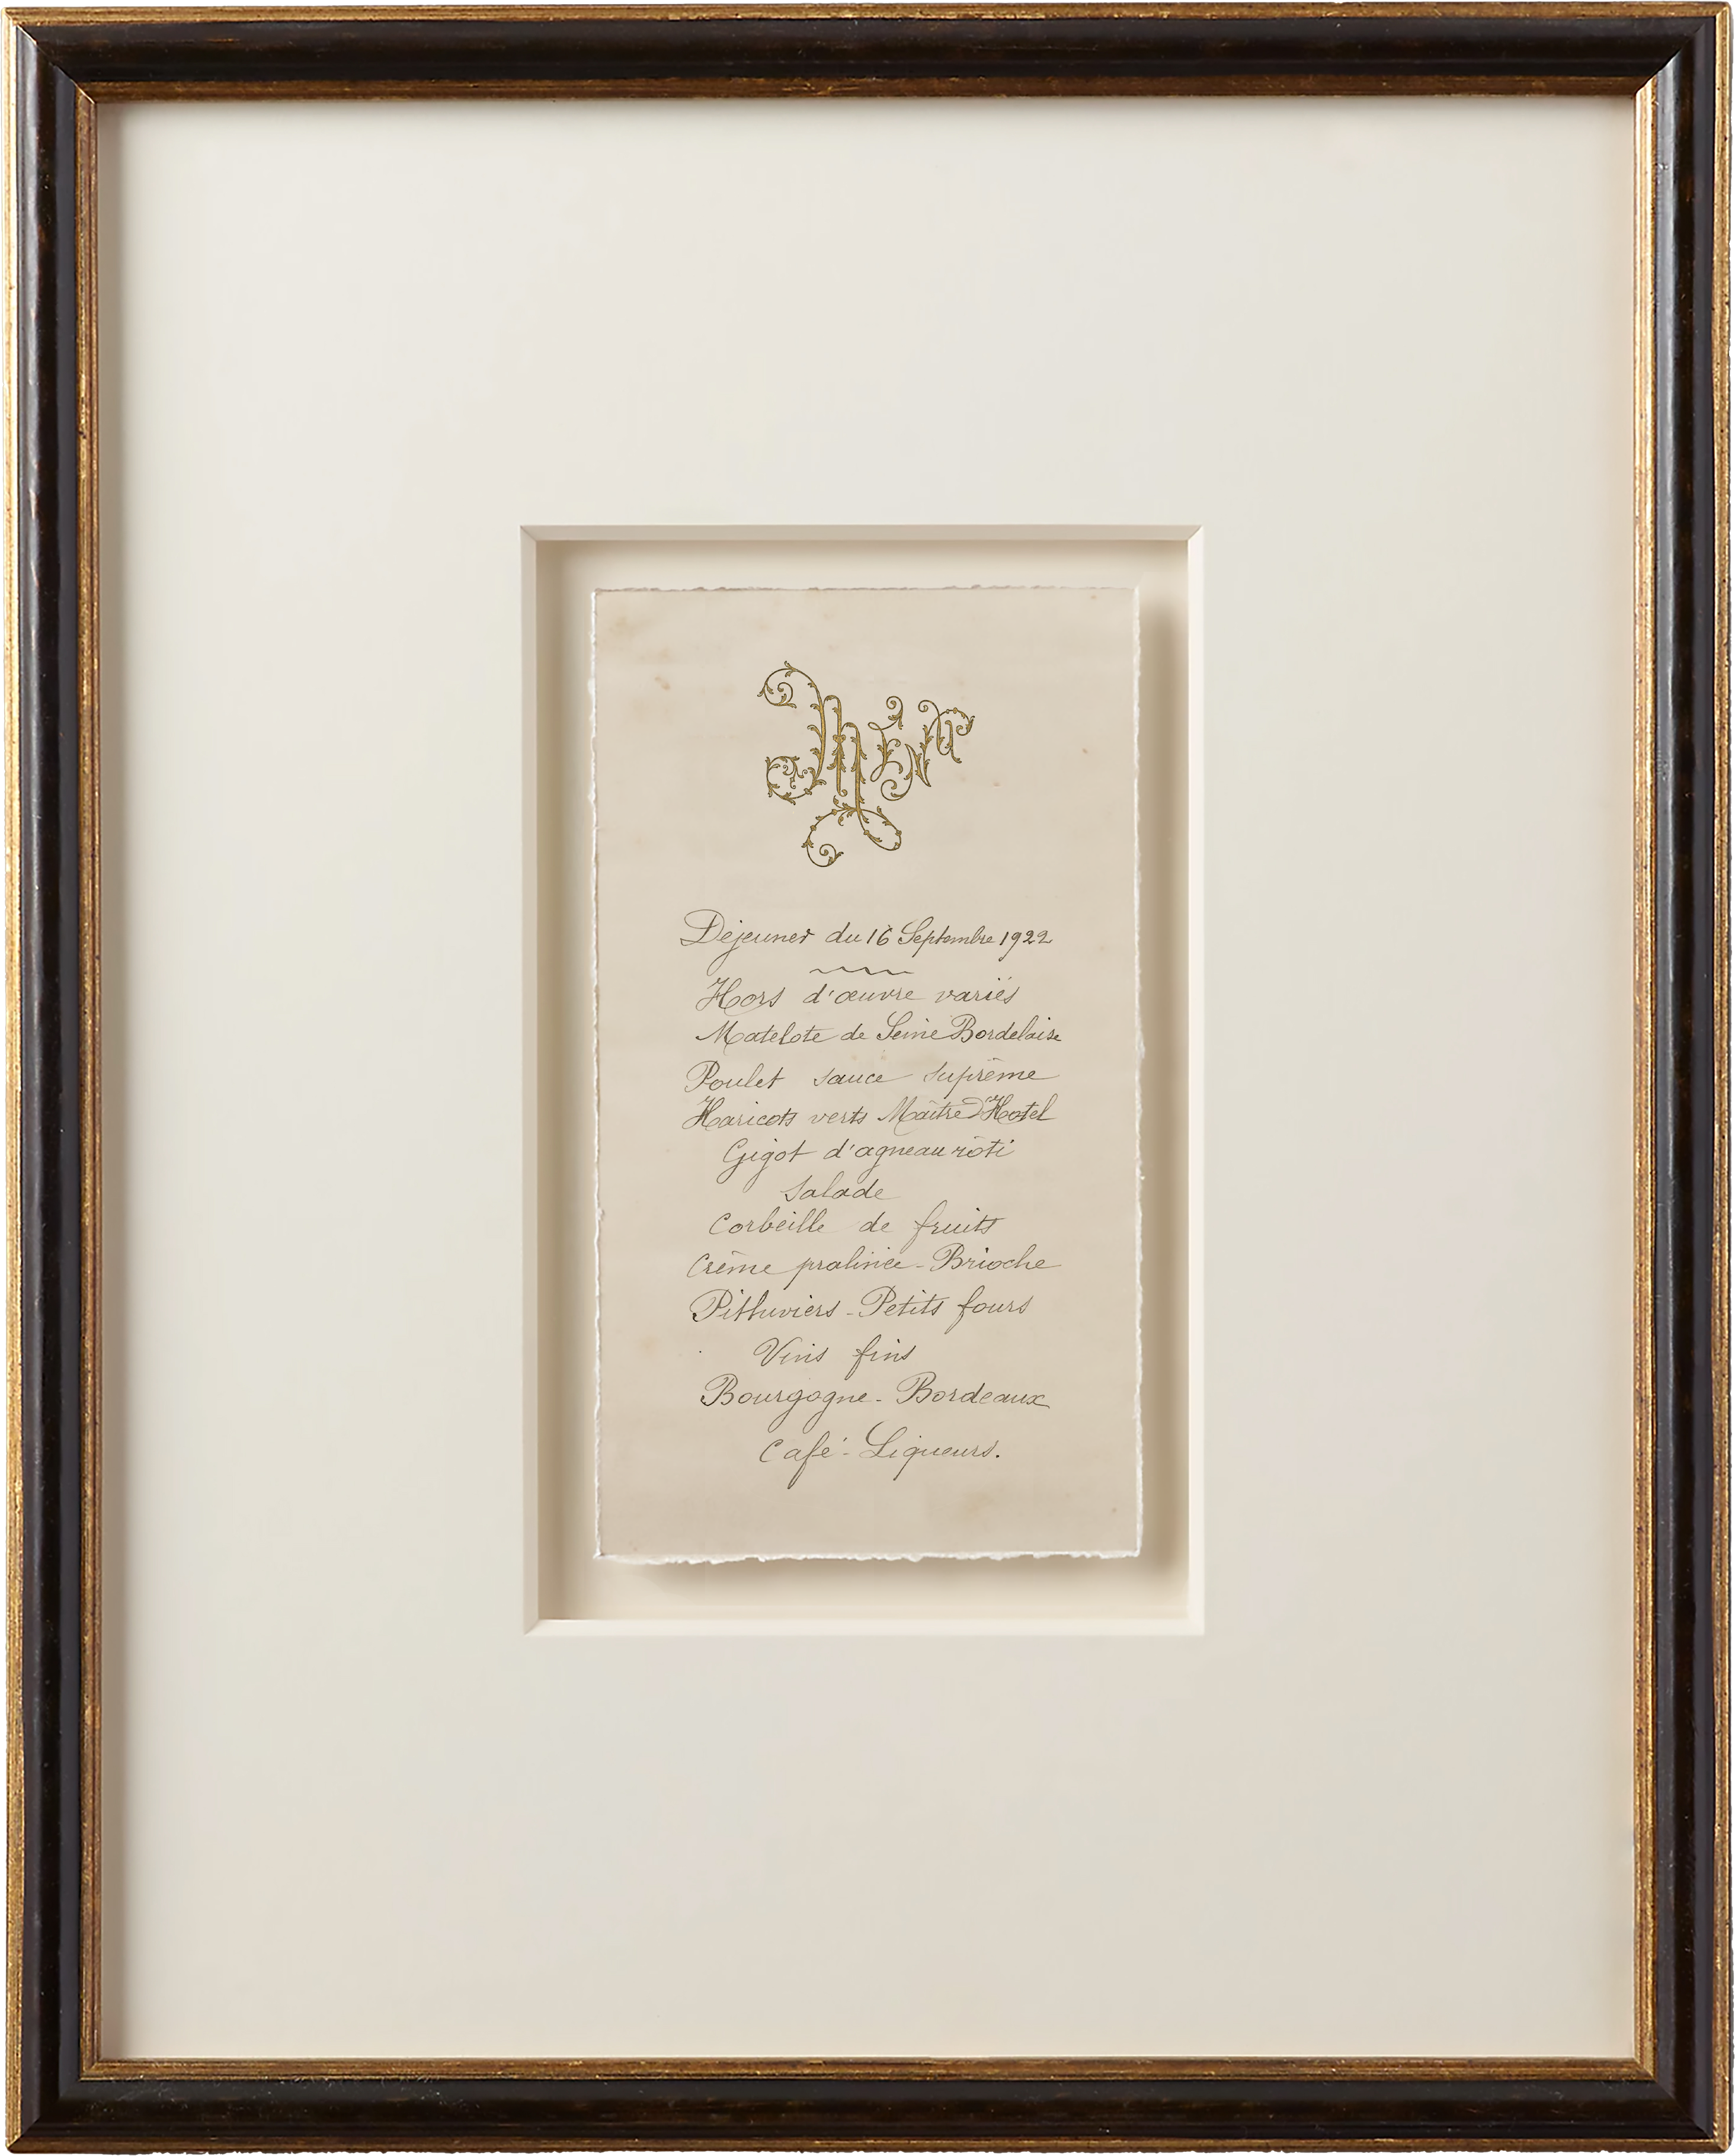 MENU
Déjeuner du 16 Septembre 1922
Hors d'œuvre variés
Matelote de Seine Bordelaise
Poulet sauce suprême
Haricots verts Maître d'Hotel
Gigot d'agneau rôti
Salade
Corbeille de fruits
Crème pralinée - Brioche
Pithiviers - Petits fours
Vins fins
Bourgogne - Bordeaux
Café - Liqueurs.